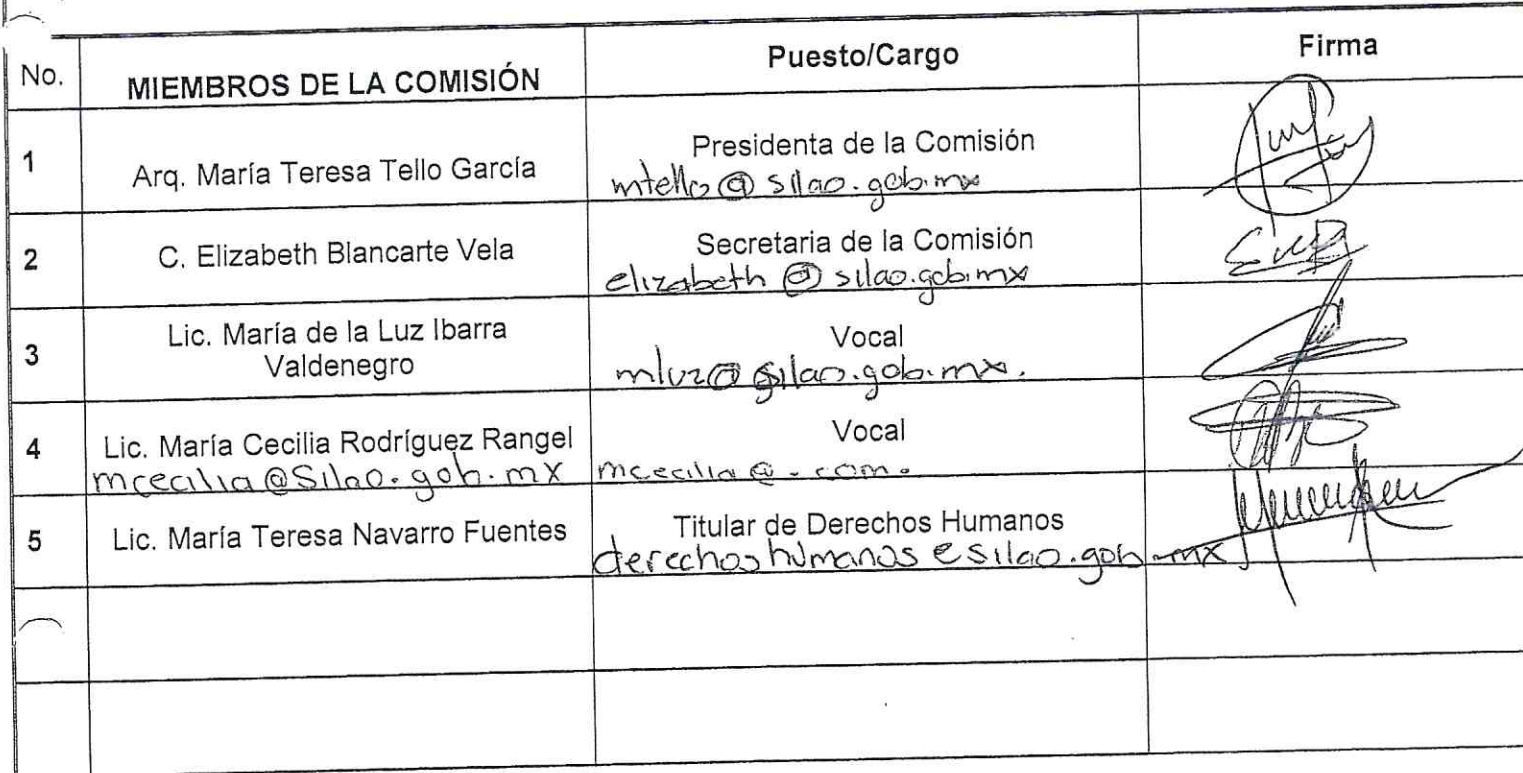 No. MIEMBROS DE LA COMISIÓN Puesto/Cargo Firma
1 Arq. María Teresa Tello García Presidenta de la Comisión
mtello@silao.gob.mx
2 C. Elizabeth Blancarte Vela Secretaria de la Comisión
elizabeth@silao.gob.mx
3 Lic. María de la Luz Ibarra
Valdenegro
Vocal
mluz@silao.gob.mx.
4 Lic. María Cecilia Rodríguez Rangel Vocal
mcecilia@Silao.gob.mx mcecilia@.com.
5 Lic. María Teresa Navarro Fuentes Titular de Derechos Humanos
derechos humanos e silao.gob.mx